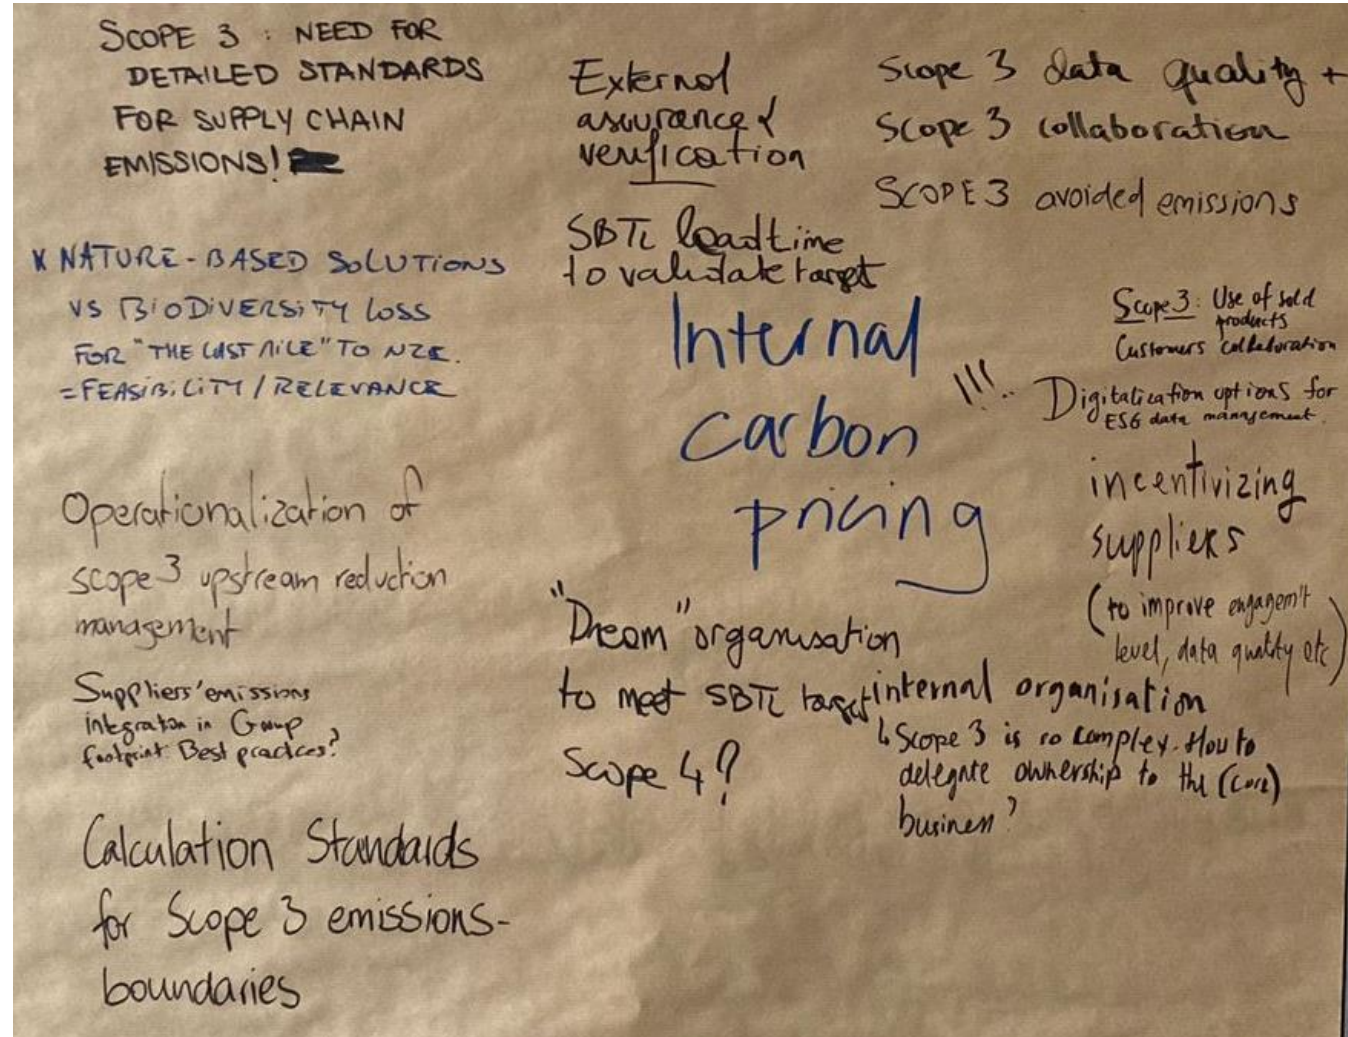 SCOPE 3 : NEED FOR
DETAILED STANDARDS
FOR SUPPLY CHAIN
EMISSIONS!
x NATURE-BASED SOLUTIONS
VS BIODIVERSITY LOSS
FOR "THE LAST MILE" TO NZE.
= FEASIBILITY / RELEVANCE
Operationalization of
scope 3 upstream reduction
management
Suppliers' emissions
integration in Group
footprint. Best practices?
Calculation Standards
for Scope 3 emissions-
boundaries
External
assurance &
verification
SBTi leadtime
to validate target
Internal
carbon
pricing
"Dream" organisation
to meet SBTi target
Scope 4?
Scope 3 data quality +
Scope 3 collaboration
SCOPE 3 avoided emissions
Scope 3: Use of sold
products
Customers collaboration
!!!..
Digitalication options for
ESG data management.
incentivizing
suppliers
(to improve engagem't
level, data quality etc)
internal organisation
↳ Scope 3 is so complex. How to
delegate ownership to the (core)
business?